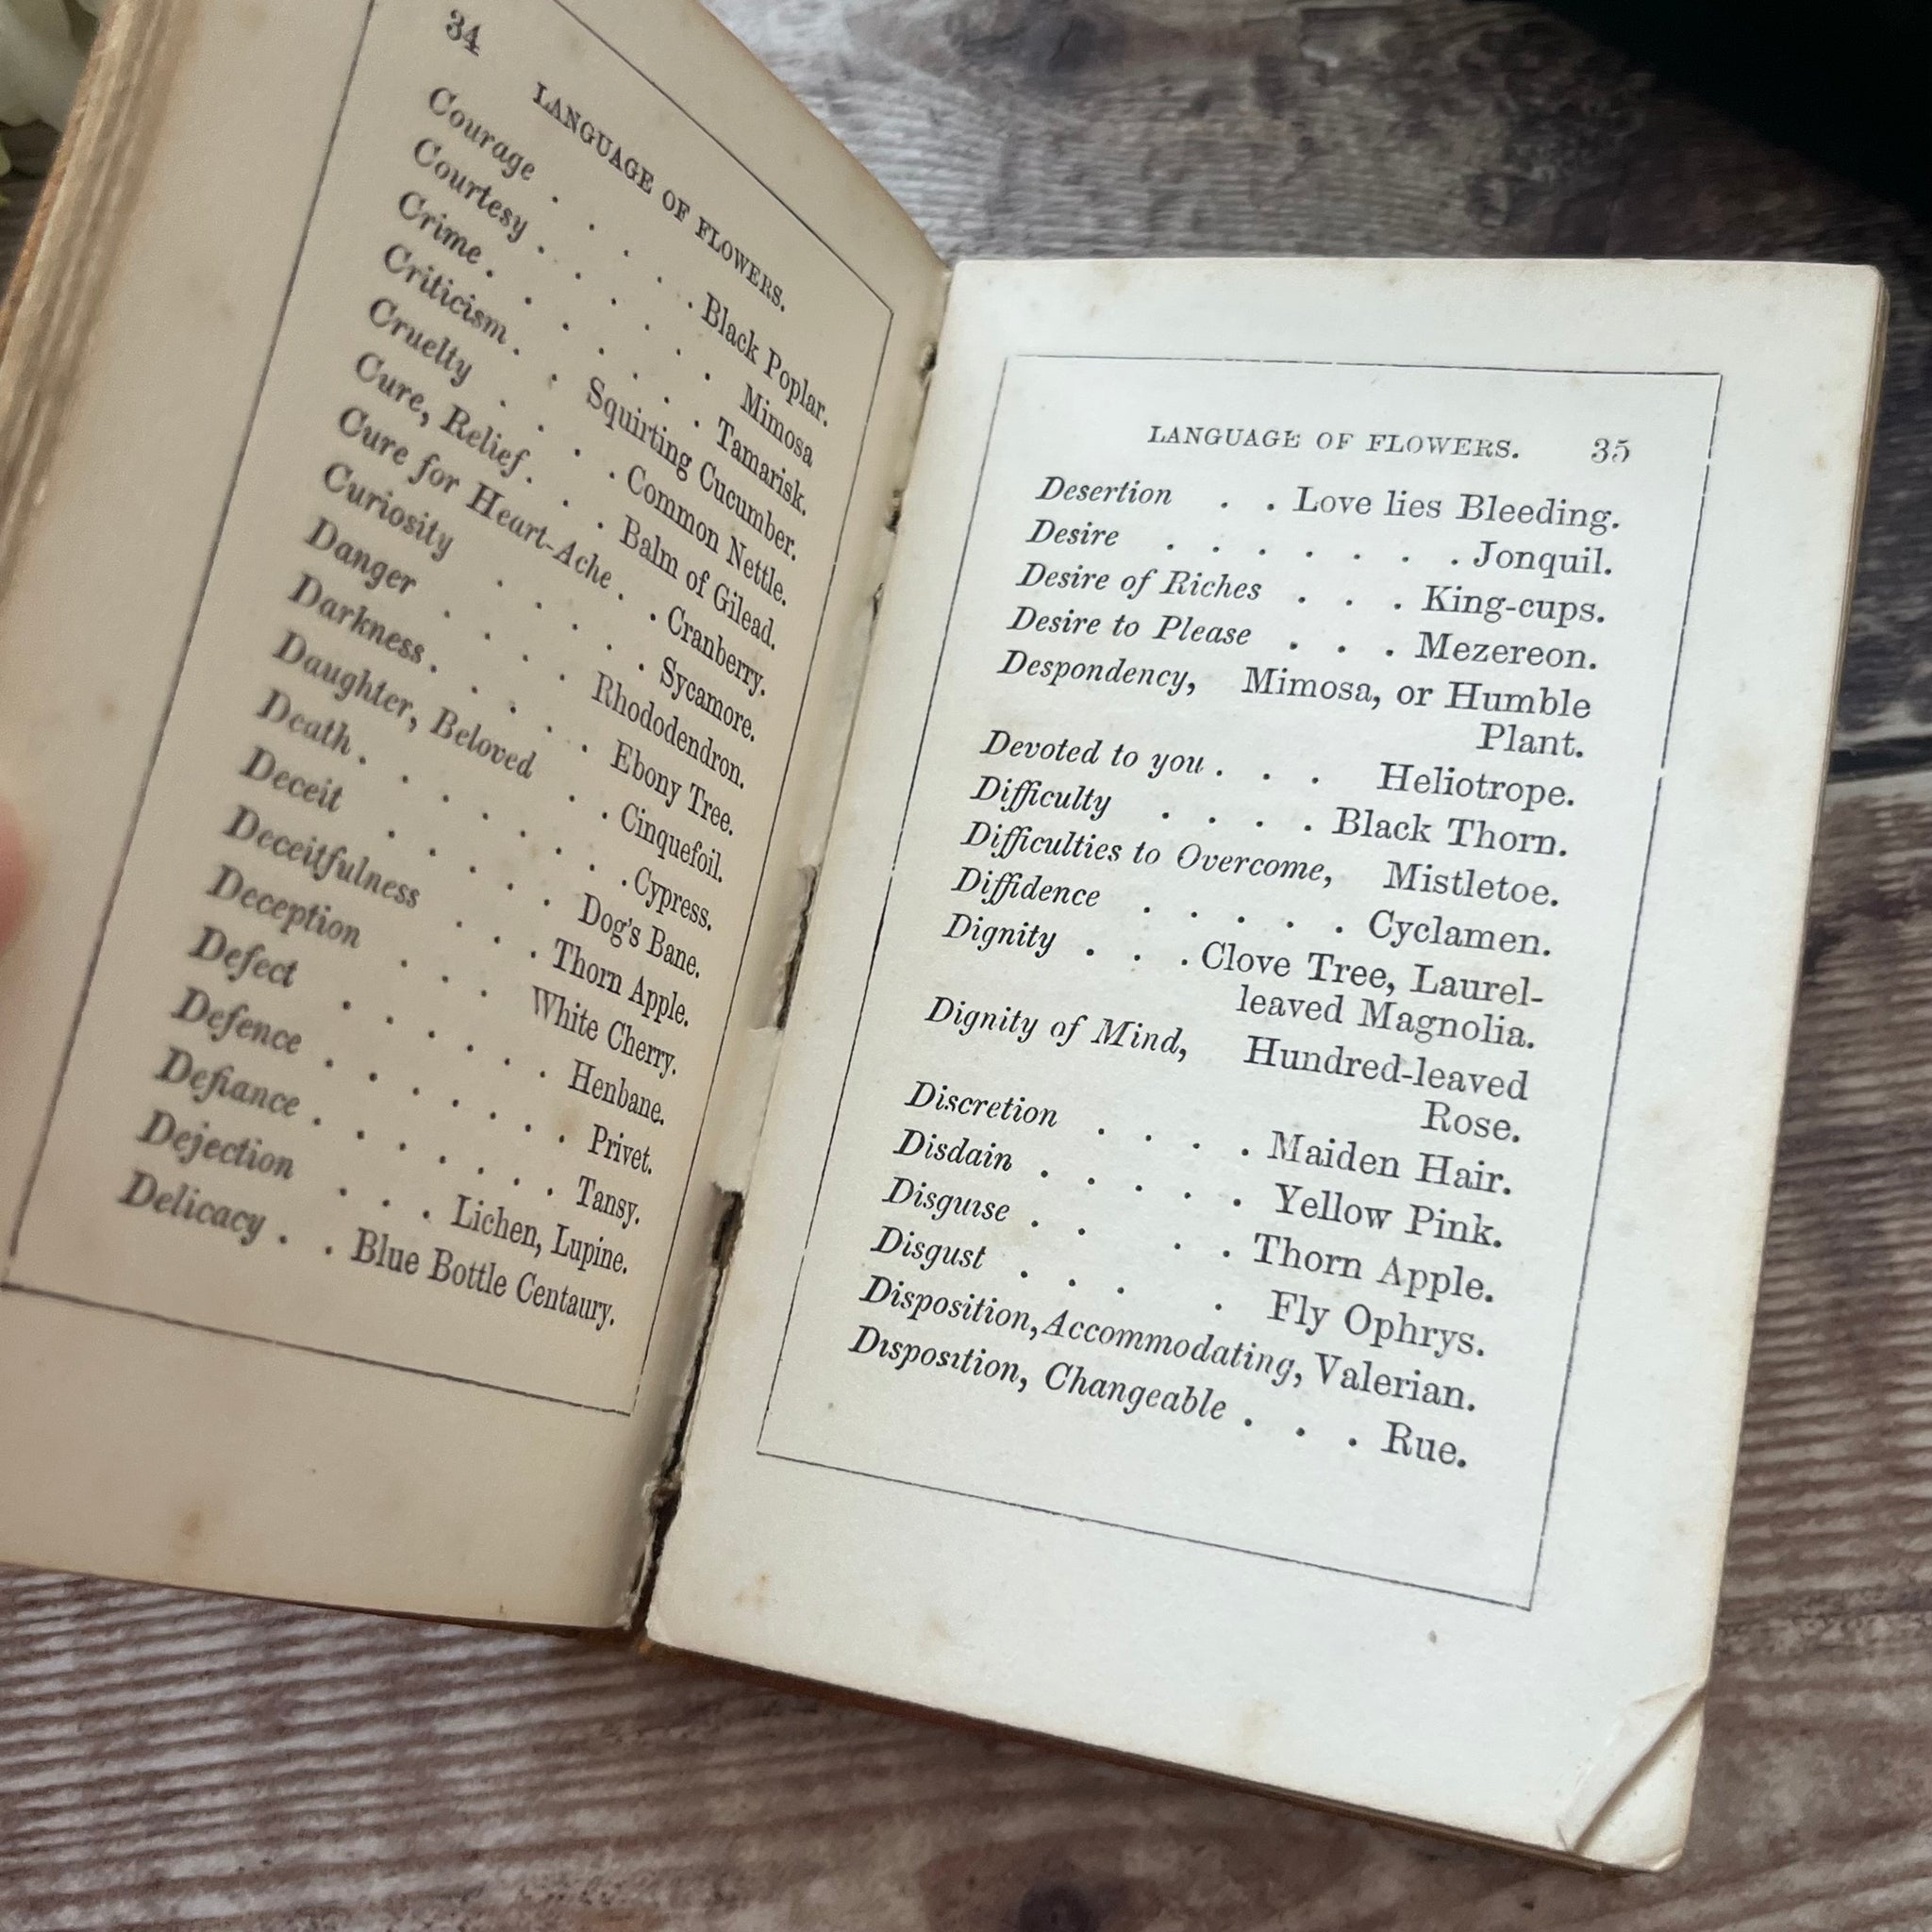 34 LANGUAGE OF FLOWERS.
Courage . . . . . Black Poplar.
Courtesy . . . . . . Mimosa
Crime . . . . . . Tamarisk.
Criticism . . Squirting Cucumber.
Cruelty . . . . Common Nettle.
Cure, Relief . . . Balm of Gilead.
Cure for Heart-Ache . . Cranberry.
Curiosity . . . . . Sycamore.
Danger . . . . Rhododendron.
Darkness . . . . . Ebony Tree.
Daughter, Beloved . . Cinquefoil.
Death . . . . . . . Cypress.
Deceit . . . . . Dog's Bane.
Deceitfulness . . . Thorn Apple.
Deception . . . White Cherry.
Defect . . . . . . Henbane.
Defence . . . . . . . Privet.
Defiance . . . . . . . Tansy.
Dejection . . . Lichen, Lupine.
Delicacy . . Blue Bottle Centaury.
LANGUAGE OF FLOWERS. 35
Desertion . . Love lies Bleeding.
Desire . . . . . . . Jonquil.
Desire of Riches . . . King-cups.
Desire to Please . . . Mezereon.
Despondency, Mimosa, or Humble
Plant.
Devoted to you . . . Heliotrope.
Difficulty . . . . Black Thorn.
Difficulties to Overcome, Mistletoe.
Diffidence . . . . . Cyclamen.
Dignity . . . Clove Tree, Laurel-
leaved Magnolia.
Dignity of Mind, Hundred-leaved
Rose.
Discretion . . . . Maiden Hair.
Disdain . . . . . Yellow Pink.
Disguise . . . . Thorn Apple.
Disgust . . . . Fly Ophrys.
Disposition, Accommodating, Valerian.
Disposition, Changeable . . . Rue.